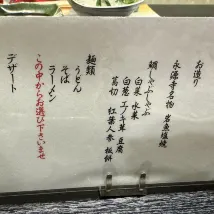 お造り
永源寺名物 岩魚塩焼
鯛しゃぶしゃぶ
白菜 水菜
白葱 エノキ茸 豆腐
葛切 紅葉人参 板餅
麺類
うどん
そば
ラーメン
この中からお選び下さいませ
デザート